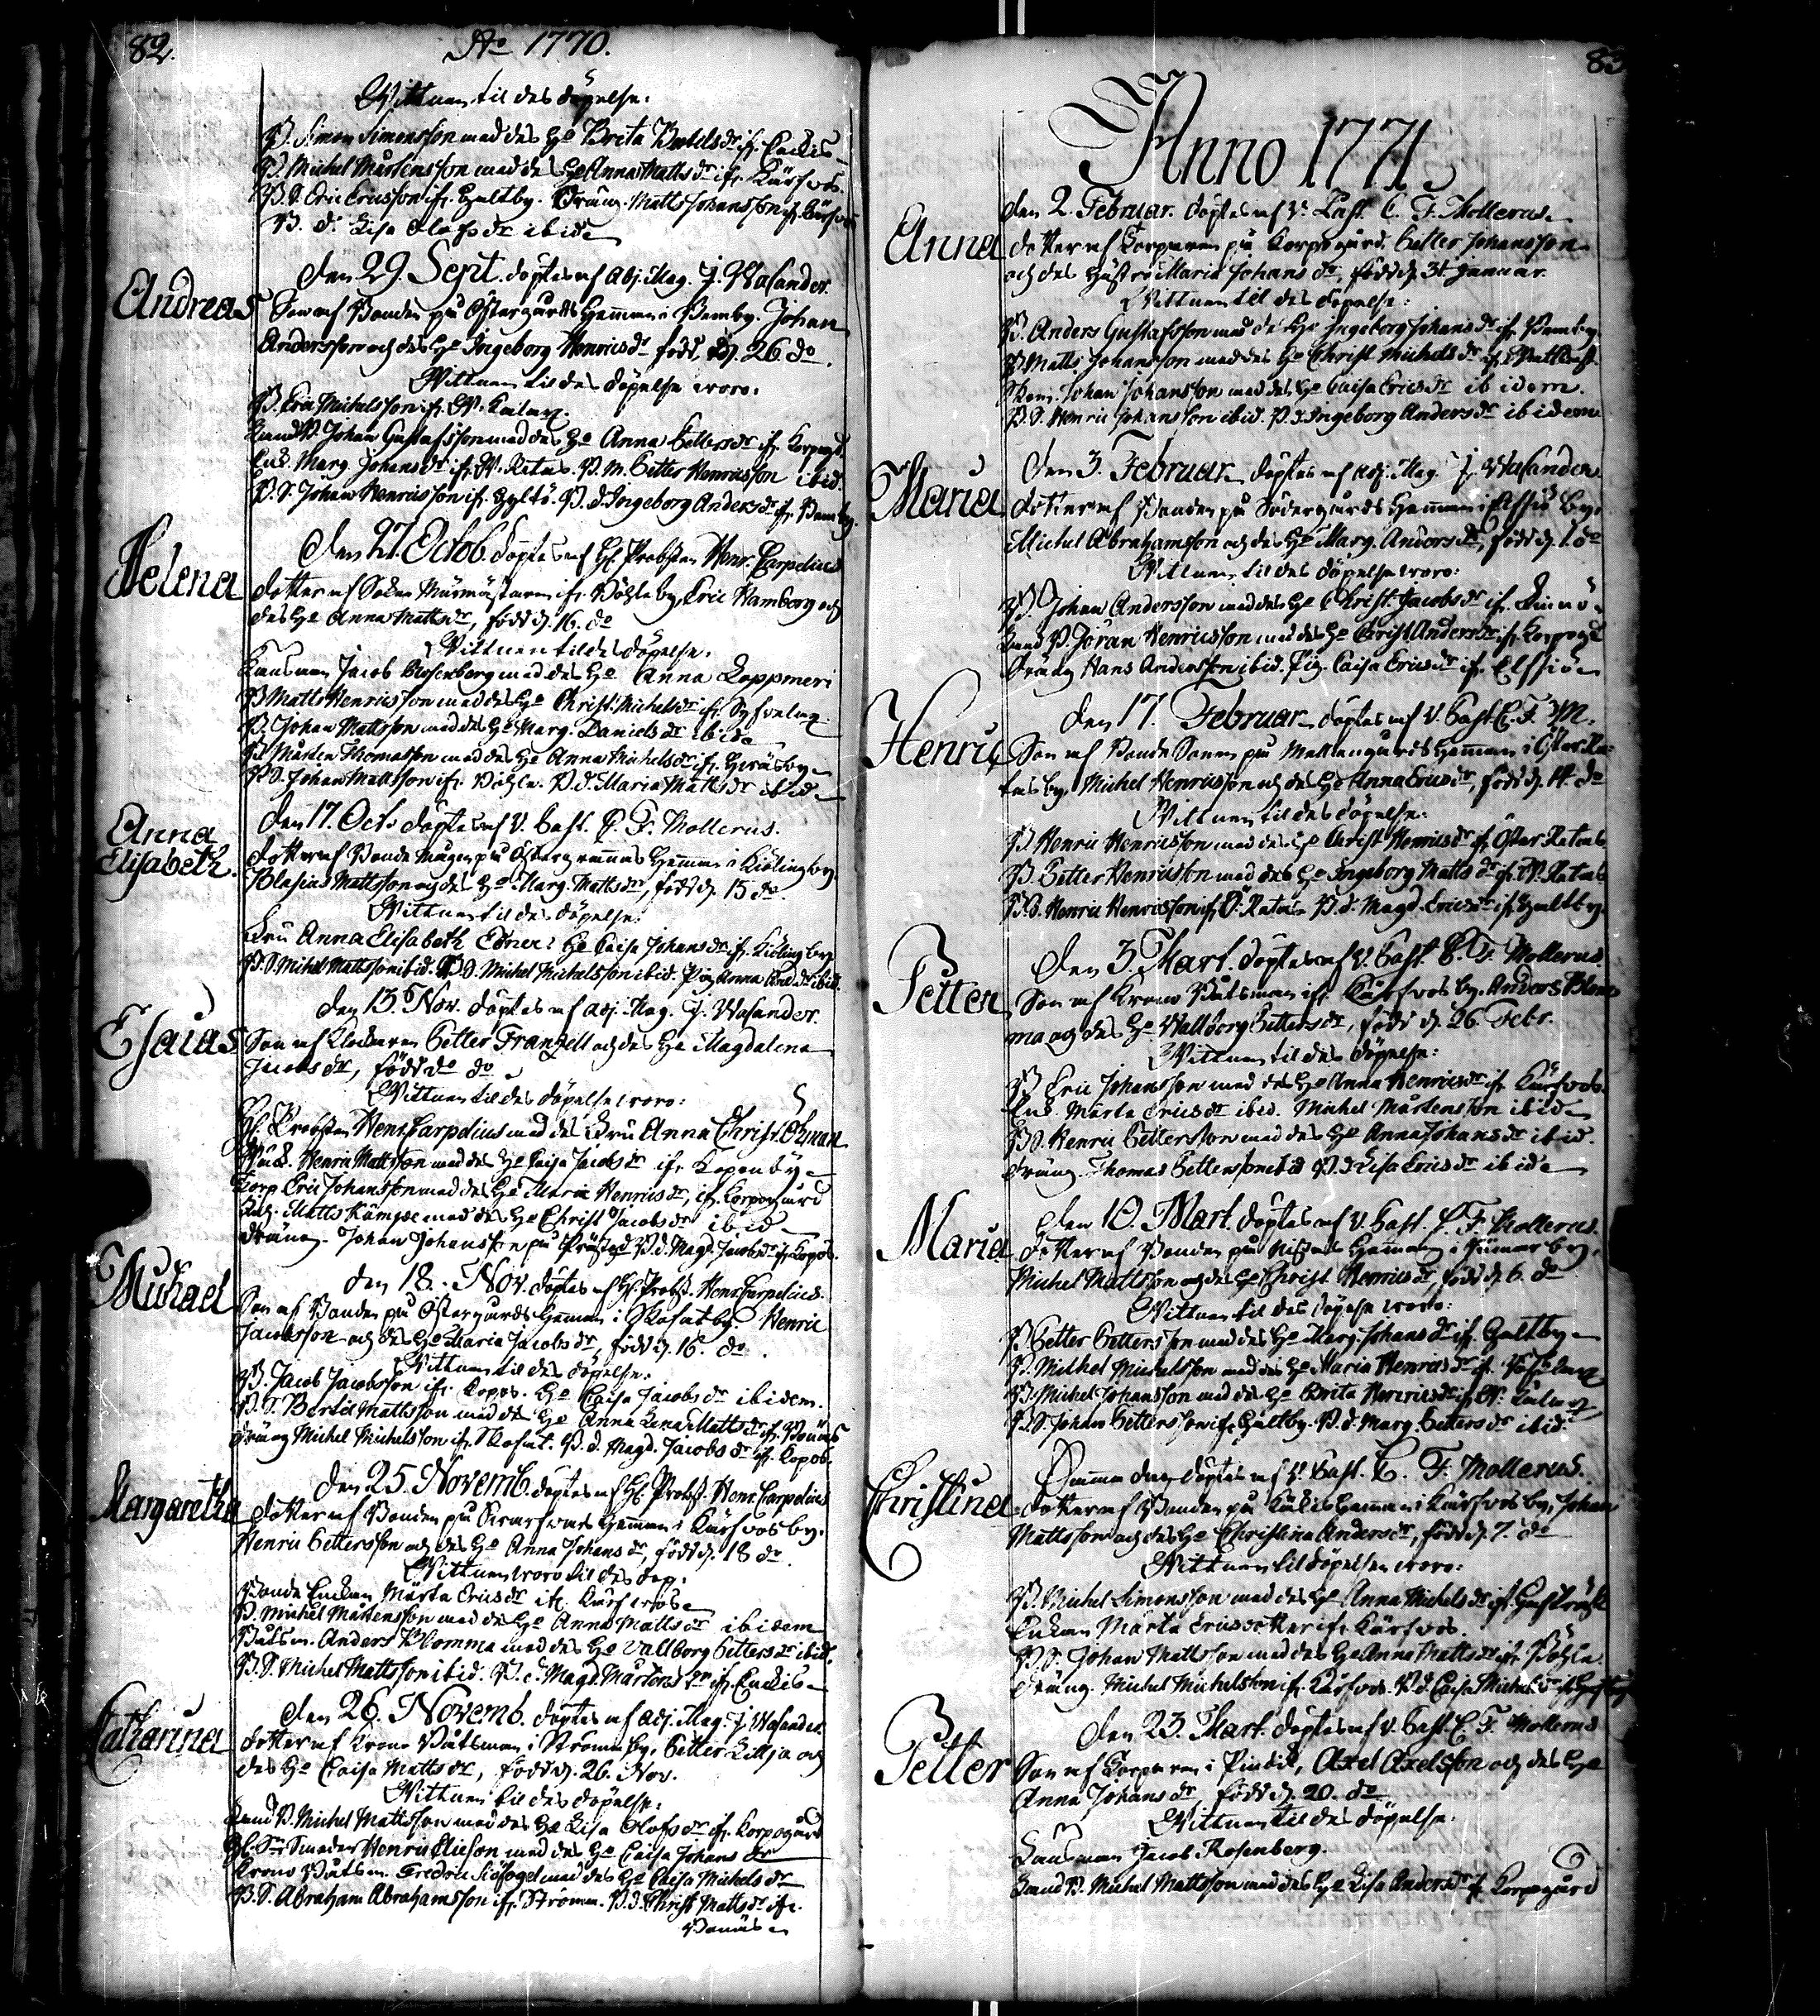 82.
Ao 1770.
Wittnen til des döpelse.
B. Simon Simonsson med des He Brita Bertelsdr ifr.
B. Michel Mårtensson med des He Anna Mattsdr ifr. Kårfvos.
B.S. Eric Ericsson ifr. Galtby. Dräng. Matts Johansson ifr. Kårfvos
B. d. Lisa Olofsdr ibid.
Andreas
den 29. Sept. döptes af Adj. Mag. J. Wasander.
Son af Bonden på Östergårds Hemman i Remby. Johan
Andersson och des He Ingeborg Henricsdr född d. 26. do.
Wittnen til des döpelse woro.
B. Eric Michelsson ifr. W.
B. Johan Gustafsson med des He Anna Pettersdr ifr. Korpogd.
Enk. Marg. Johansdr ifr. W. Retais. B. M. Petter Henricsson ibid.
B. S. Johan Henricsson ifr. Hyltö. B. d. Ingeborg Andersdr ifr. Remby.
Helena
den 27. Octob. döptes af H. Probsten Henr. Carpelius
dotter af Sokn Murmästaren ifr. Böhle by, Eric Hamberg och
des He Anna Mattsdr, född d. 16. do
Wittnen til des döpelse.
Länsman Jacob Rosenberg med des He Anna Koppmeri
B Matts Henricsson med des He Christ. Michelsdr ifr.
B. Johan Mattsson med des He Marg. Danielsdr ibid
B. Mårten Thomasson med des He Anna Michelsdr ifr.
B S. Johan Mattsson ifr. Böhle. B. d. Maria Mattsdr ibid
Anna
Elisabeth.
den 17. Oct. döptes af V. Past. C. F. Mollerus.
dotter af Bonde Mågen på Östergrannas Hemman i Kiölingby
Blasius Mattsson och des He Marg. Mattsdr, född d. 15 do.
Wittnen til des döpelse.
Fru Anna Elisabeth He Caisa Johansdr ifr. Kiölingby
B. S. Michel Mattsson ibid. B. S. Michel Michelsson ibid. Pig. Anna ibid.
Esaias
den 13. Nov. döptes af Adj. Mag. J. Wasander.
Son af Klockaren Petter Franzell och des He Magdalena
Jacobsdr, född do do
Wittnen til des döpelse woro:
H. Probsten Henr. Carpelius med des Fru Anna Christ. Öhman
Henric Mattsson med des He Caisa Jacobsdr ifr. Kopenby
Torp. Eric Johansson med des He Maria Henricsdr, ifr. Korpogård
Matts Kämpe med des He Christ. Jacobsdr ibid
dräng. Johan Johansson på Prästgd B. d. Magd. Jacobsdr ifr. Kopos.
Michael
den 18. Nov. döptes af H. Probst. Henr. Carpelius.
Son af Bonden på Östergårds Hemman i Skofatby. Henric
Jacobsson och des He Maria Jacobsdr, född d. 16. do.
Wittnen til des döpelse.
B. Jacob Jacobsson ifr. Kopos. He Caisa Jacobsdr ibidem.
B. S. Bertil Mattsson med des He Anna Lena Mattsdr ifr.
dräng Michel Michelsson ifr. Skofat. B. d. Magd. Jacobsdr ifr. Kopos.
Margaretha
den 25. Novemb. döptes af H. Probst. Henr. Carpelius
dotter af Bonden på Hemman i Kårfvos by.
Henric Pettersson och des He Anna Johansdr, född d. 18 do.
Wittnen woro til des döp.
Bonde Enkan Märta Ericsdr ifr. Kårfvos
B. Michel Mårtensson med des He Anna Mattsdr ibidem
Båtsm. Anders Blomma med des He Vallborg Pettersdr ibid.
B. S. Michel Mattsson ibid. B. d. Magd. Mårtensdr ifr.
Catharina
den 26. Novemb. döptes af Adj. Mag. J Wasander.
dotter af Krono Båtsman i Strömma by, Petter Lillja och
des He Caisa Mattsdr, född d. 26. Nov.
Wittnen til des döpelse.
B. Michel Mattsson med des He Lisa Olofsdr ifr. Korpogård
Henric Elieson med des He Caisa Johansdr
Krono Båtsm. Fredric Siöfogel med des He Caisa Michelsdr
B. S. Abraham Abrahamsson ifr. Strömm. B. d. Christ. Mattsdr ifr.
83
Anno 1771.
Anna
den 2. Februar. döptes af V. Past. C. F. Mollerus
dotter af Torparen på Korpogård. Petter Johansson
och des Hustro Maria Johansdr, född d. 31 Januar.
Wittnen til des döpelse:
B. Anders Gustafsson med des He Ingeborg Johansdr ifr. Remby
B Matts Johansson med des He Christ. Michelsdr ifr.
Johan Johansson med des He Caisa Ericsdr ibidem.
B. S. Henric Johansson ibid. B. d. Ingeborg Andersdr ibidem
Maria
den 3. Februar. döptes af Adj. Mag. J. Wasander
dotter af Bonden på Södergårds Hemman i Elfsiö by.
Michel Abrahamsson och des He Marg. Andersdr, född d. 1. do
Wittnen til des döpelse woro:
B. Johan Andersson med des He Christ. Jacobsdr ifr.
B. Jöran Henricsson med des He Christ. Andersdr ifr. Korpogd
Dräng Hans Andersson ibid. Pig. Caisa Ericsdr ifr. Elfsiö
Henric
den 17. Februar. döptes af V. Past. C. F. M.
Son af Bonde Sonen på Mellangårds Hemman i Öster Re-
tais by. Michel Henricsson och des He Anna Ericsdr, född d. 14. do
Wittnen til des döpelse:
B Henric Henricsson med des He Christ. Henricsdr ifr. Öster Retais
B. Petter Henricsson med des He Ingeborg Mattsdr ifr. W. Retais
B. S. Henric Henricsson ifr. Ö. Retais B. d. Magd. Ericsdr ifr. Galtby.
Petter
den 3. Mart. döptes af V. Past. C. F. Mollerus.
Son af Krono Båtsman ifr. Kårfvos by. Anders Blom-
ma och des He Wallborg Pettersdr, född d. 26. Febr.
Wittnen til des döpelse:
B Eric Johansson med des He Anna Henricsdr ifr. Kårfvos
Enk. Märta Ericsdr ibid. Michel Mårtensson ibid
B. S. Henric Pettersson med des He Anna Johansdr ibid.
dräng. Thomas Pettersson ibid B. d Lisa Ericsdr ibid
Maria
den 10. Mart. döptes af V. Past. C. F. Mollerus.
dotter af Bonden på Hemman i by.
Michel Mattsson och des He Christ. Henricsdr, född d. 6. do
Wittnen til des döpelse woro:
B. Petter Pettersson med des He Marg. Johansdr ifr. Galtby
B. Michel Michelsson med des He Maria Henricsdr ifr.
B. Michel Johansson med des He Brita Henricsdr ifr. W.
B. S. Johan Pettersson ifr. Galtby. B. d. Marg. Pettersdr ibid.
Christina
Samma dag döptes af V. Past. C. F. Mollerus.
dotter af Bonden på Hemman i Kårfvos by, Johan
Mattsson och des He Christina Andersdr, född d. 7. do
Wittnen til döpelsen woro:
B. Michel Simonsson med des He Anna Michelsdr ifr.
Enkan Märta Ericsdotter ifr. Kårfvos.
B. S. Johan Mattsson med des He Anna Mattsdr ifr. Böhle
dräng. Michel Michelsson ifr. Kårfvos. B. d Caisa Michelsdr ifr.
Petter
den 23. Mart. döptes af V. Past. C. F. Mollerus
Son af Torparen i, Axel Axelsson och des He
Anna Johansdr, född d. 20. do
Wittnen til des döpelse.
Länsman Jacob Rosenberg.
B. Michel Mattsson med des He Lisa Andersdr ifr Korpogård